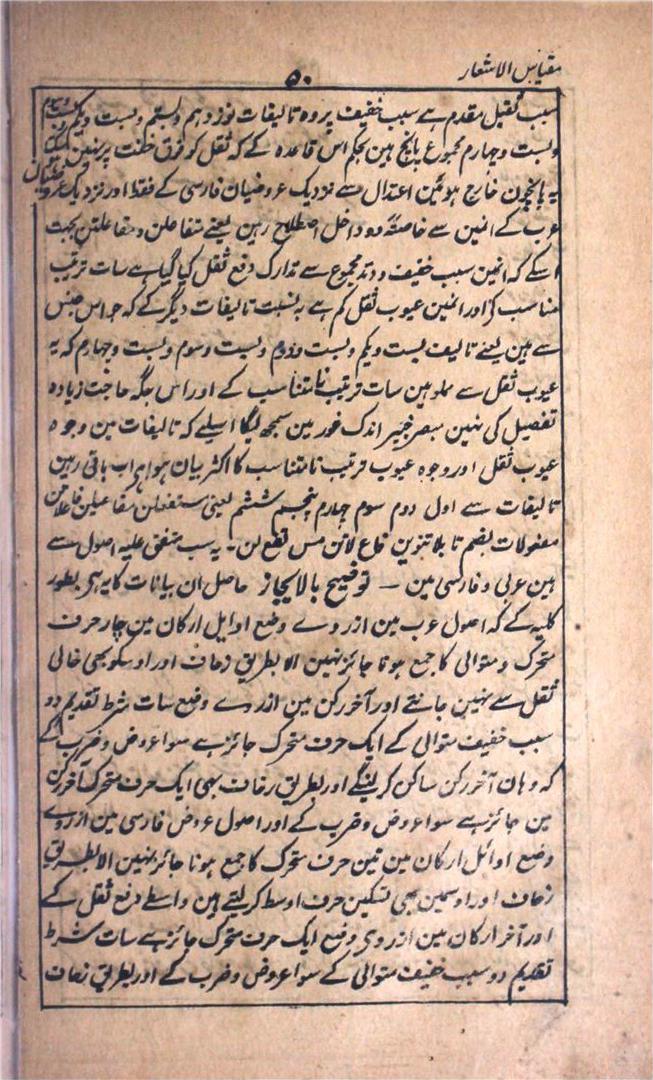 مقیاس الاشعار
۵۰
سبب ثقیل مقدم ہے سبب خفیف پر وہ تالیفات نوزدہم و بستم و بست و یکم
و بست و چہارم مجموع پانچ ہین بحکم اس قاعدہ کے کہ ثقل کو فوق خفت پر نہین
یہ پانچون خارج ہوئین اعتدال سے نزدیک عروضیان فارسی کے فقط اور نزدیک
عرب کے انمین سے خاصۃً دو داخل اصطلاح رہین یعنے متفاعلن و مفاعلتن بجہت
اسکے کہ انمین سبب خفیف و وتد مجموع سے تدارک دفع ثقل کیا گیا ہے سات ترتیب
مناسب کی اور انمین عیوب ثقل کم ہے بہ نسبت تالیفات دیگر کے کہ جو اس جنس
سے ہین یعنے تالیف بست و یکم و بست و دوم و بست و سوم و بست و چہارم کہ یہ
عیوب ثقل سے مملو ہین سات ترتیب نامتناسب کے اور اس جگہ حاجت زیادہ
تفصیل کی نہین مبصر خبیر اندک غور مین سمجھ لیگا اسلیے کہ تالیفات مین وجوہ
عیوب ثقل اور وجوہ عیوب ترتیب نامتناسب کا اکثر بیان ہوا ہی اب باقی رہین
تالیفات سے اول دوم سوم چہارم پنجم ششم یعنی مستفعلن مفاعیلن فاعلاتن
مفعولات بضم تا بلا تنوین فاع لاتن مس تفع لن ۔ یہ سب متفق علیہ اصول سے
ہین عربی و فارسی مین — توضیح بالایجاز حاصل ان بیانات کا یہ ہی بطور
کلیہ کے کہ اصول عرب مین از روے وضع اوایل ارکان مین چار حرف
متحرک و متوالی کا جمع ہونا جائز نہین الا بطریق زحاف اور اوسکو بھی خالی
ثقل سے نہین جانتے اور آخر رکن مین از روے وضع سات شرط تقدیم دو
سبب خفیف متوالی کے ایک حرف متحرک جائز ہے سوا عروض و ضرب کے
کہ وہان آخر رکن ساکن کر لینگے اور بطریق زحاف بھی ایک حرف متحرک آخر رکن
مین جائز ہے سوا عروض و ضرب کے اور اصول عروض فارسی مین از روے
وضع اوائل ارکان مین تین حرف متحرک کا جمع ہونا جائز نہین الا بطریق
زحاف اور اوسمین بھی تسکین حرف اوسط کر لیتے ہین واسطے دفع ثقل کے
اور آخر ارکان مین از روی وضع ایک حرف متحرک جائز ہے سات شرط
تقدیم دو سبب خفیف متوالی کے سوا عروض و ضرب کے اور بطریق زحاف